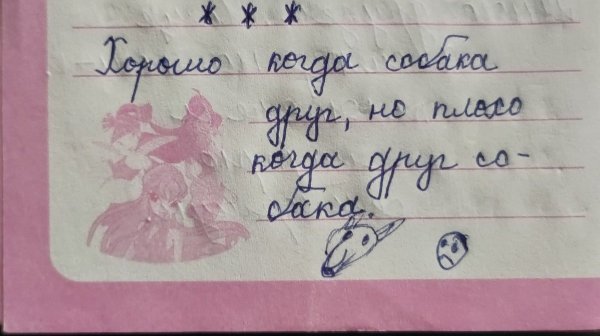 * * *
Хорошо когда собака
друг, но плохо
когда друг со-
бака.